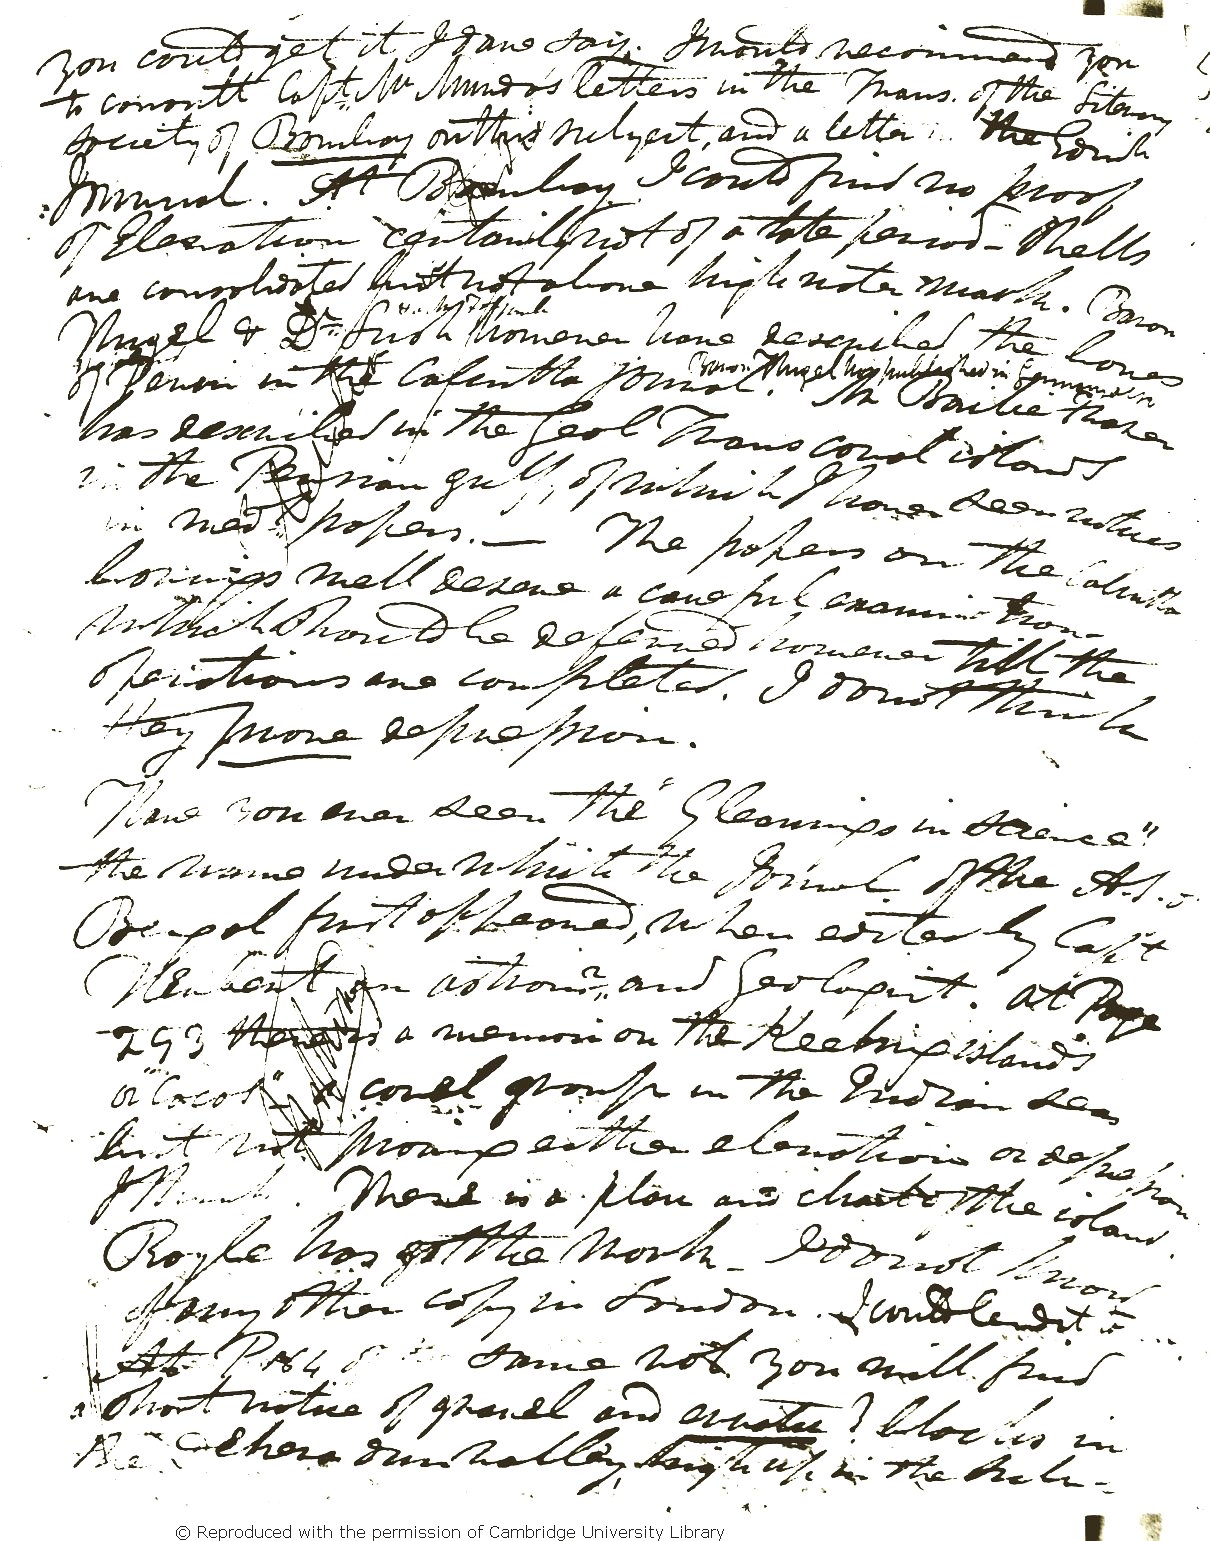 you could get it I dare say. I would recommend you
to consult Capt. Mc Murdo's letters in the Trans. of the Literary
society of Bombay on this subject, and a letter the Edinb
Journal. At Bombay I could find no proof
of Elevation certainly not of a late period – Shells
are consolidated but not above high water mark. Baron
Hugel & Dr. however have described the bones
of Perim in the Calcutta Journal. Baron Hugel has published in
Mr Bailie Fraser
has described in the Geol Trans coral islands
in the Persian gulf, of which I have seen notices
in med. papers. — The papers on the Calcutta
borings well deserve a careful examination
which should be deferred however till the
operations are completed. I do not think
they prove depression.
Have you ever seen the "Gleanings in Science"
the name under which the Journal of the A.S.
Bengal first appeared, when edited by Capt
Herbert an astronr. and Geologist. At Page
293 there is a memoir on the Keeling islands
or "Cocos" – a coral group in the Indian seas
but not proving either elevation or depression
I think. There is a plan and chart of the island.
Royle has got the work – I do not know
of any other copy in London. I could lend it
At P. 184 same vol you will find
a short notice of gravel and erratic? blocks in
the Dehera dun valley, high up in the
© Reproduced with the permission of Cambridge University Library